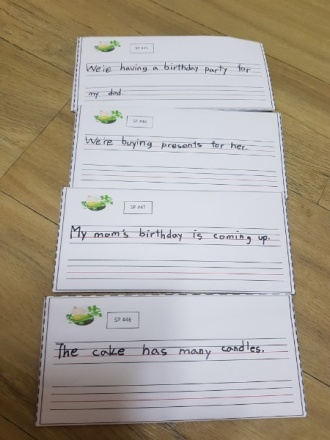 We're having a birthday party for
my dad.
We're buying presents for her.
SP 447
My mom's birthday is coming up.
SP 446
The cake has many candles.